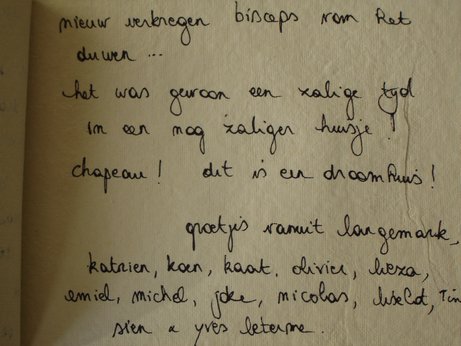 nieuw verkregen biceps van het
duwen ...
het was gewoon een zalige tijd
in een nog zaliger huisje!
chapeau! dit is een droomhuis!
groetjes vanuit langemark,
katrien, koen, kaat, olivier,
emiel, michel, joke, nicolas, liselot, Tin
sien & yves leterme.